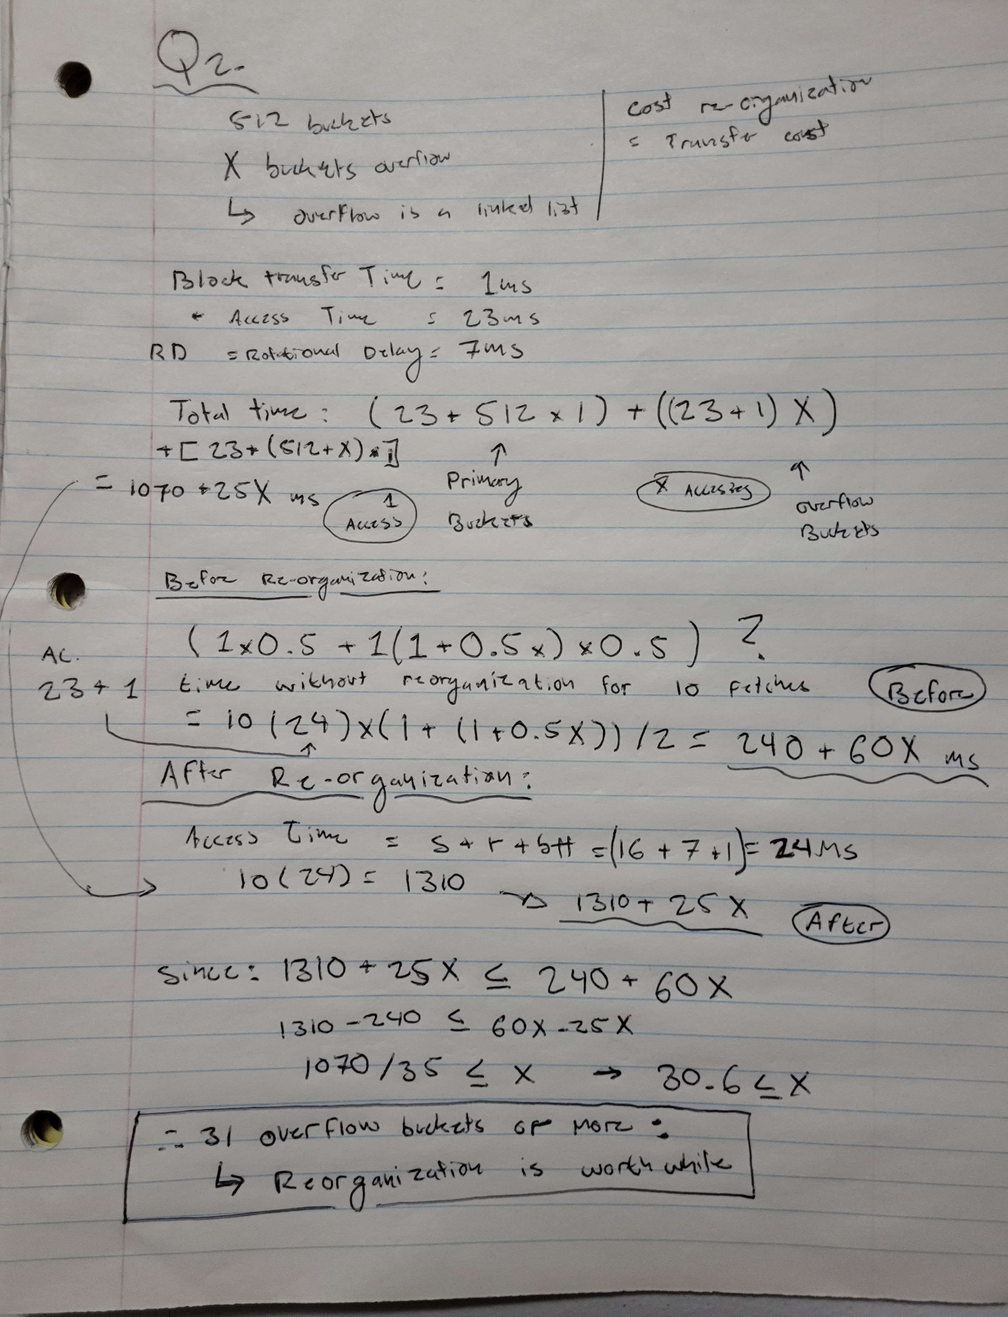 Q2.
512 buckets
X buckets overflow
↳ overflow is a linked list
Cost re-organization
= Transfer cost
Block transfer Time = 1ms
• Access Time = 23ms
RD = Rotational Delay = 7ms
Total time: (23 + 512 × 1) + ((23+1) X)
+ [23 + (512+X) * 1]
= 1070 + 25X ms
1 Access
↑ Primary Buckets
X Accesses
↑ overflow Buckets
Before Re-organization:
(1×0.5 + 1(1+0.5x) × 0.5) ?
AC.
23 + 1
time without reorganization for 10 fetches
Before
= 10 (24) × (1 + (1+0.5X)) / 2 = 240 + 60X ms
After Re-organization:
Access Time = s + r + btt = (16 + 7 + 1) = 24ms
10(24) = 1310
→ 1310 + 25X
After
since: 1310 + 25X ≤ 240 + 60X
1310 - 240 ≤ 60X - 25X
1070/35 ≤ X → 30.6 ≤ X
∴ 31 overflow buckets or more:
↳ Reorganization is worth while